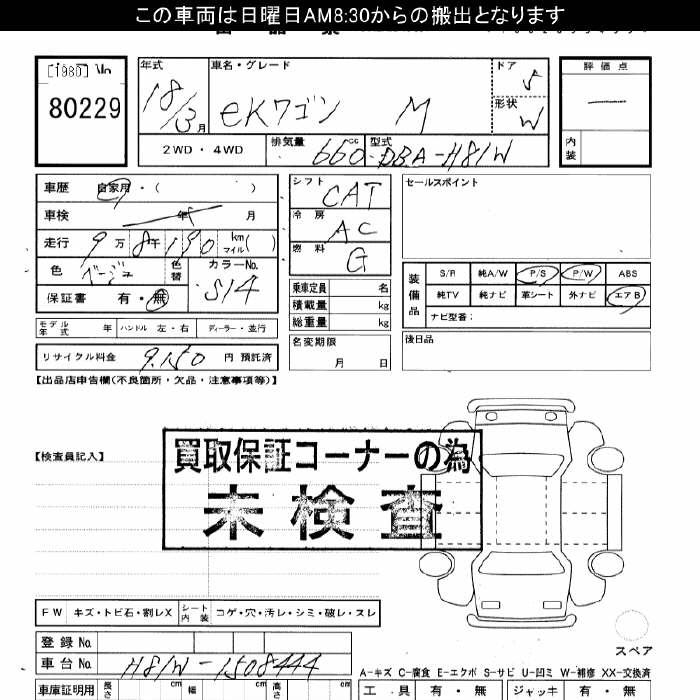 この車両は日曜日AM8:30からの搬出となります
[1980] No
80229
年式
18/3月
車名・グレード
eKワゴン M
ドア
5
形状
W
評価点
内装
2WD・4WD
排気量
660cc
型式
DBA-H81W
車歴 自家用・( )
車検 年 月
走行 9万8千190 km マイル( )
色 ベージュ 色替 カラーNo. S14
保証書 有・無
モデル年式 年 ハンドル 左・右 ディーラー・並行
リサイクル料金 9,150 円 預託済
シフト CAT
冷房 AC
燃料 G
乗車定員 名
積載量 kg
総重量 kg
名変期限
月 日
セールスポイント
装備品
S/R 純A/W P/S P/W ABS
純TV 純ナビ 革シート 外ナビ エアB
ナビ型番:
後日品
【出品店申告欄(不良箇所・欠品・注意事項等)】
【検査員記入】
買取保証コーナーの為
未検査
FW キズ・トビ石・割レX シート内装 コゲ・穴・汚レ・シミ・破レ・スレ
登録No
車台No H81W-1508444
スペア
A-キズ C-腐食 E-エクボ S-サビ U-凹ミ W-補修 XX-交換済
車庫証明用 長さ cm 幅 cm 高さ cm
工具 有・無 ジャッキ 有・無